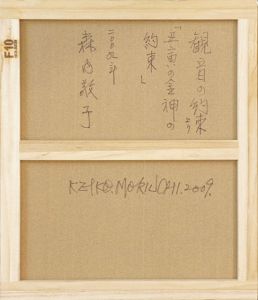 観音の約束より
神の
約束」
二〇〇九年
森内敬子
KEIKO.MORIUCHI.2009.
F10